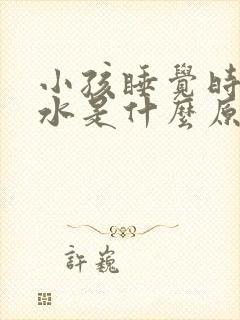 小孩睡覺時
水是什麼原
許巍